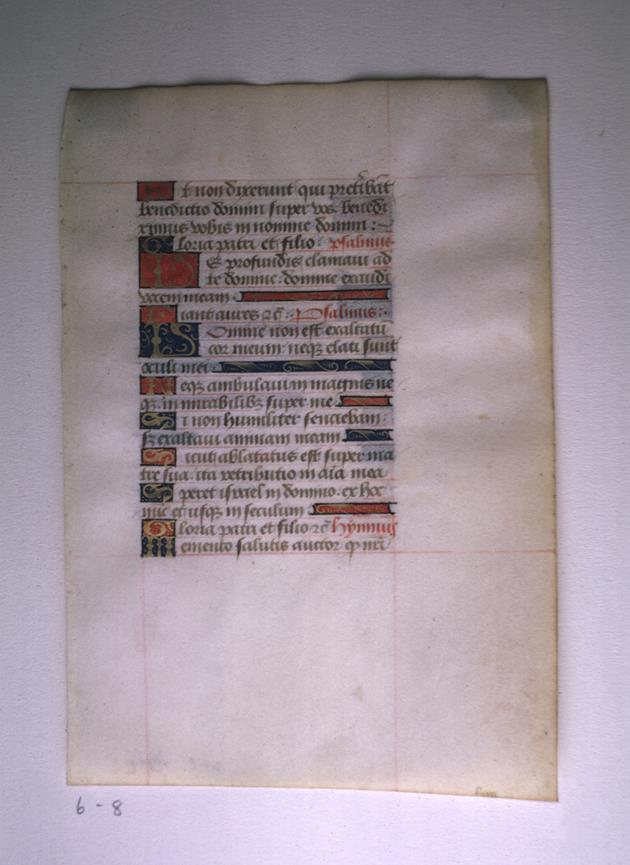 Et non dixerunt qui preteribāt
benedictio domini super vos benedi
ximus vobis in nomine domini :
Gloria patri et filio : psalmus
De profundis clamavi ad
te domine : domine exaudi
vocem meam
Fiant aures ꝛc̄ : Psalmus :
Domine non est exaltatū
cor meum : neqꝫ elati sunt
oculi mei :
Neqꝫ ambulavi in magnis ne
qꝫ in mirabilibꝫ super me
Si non humiliter sentiebam :
sꝫ exaltavi animam meam
Sicut ablatatus est super ma
tre sua : ita retributio in aīa mea
Speret israel in domino : ex hoc
nūc et usqꝫ in seculum
Gloria patri et filio ꝛc̄ hymnus
Memento salutis auctor qꝫ nr̄i
6-8